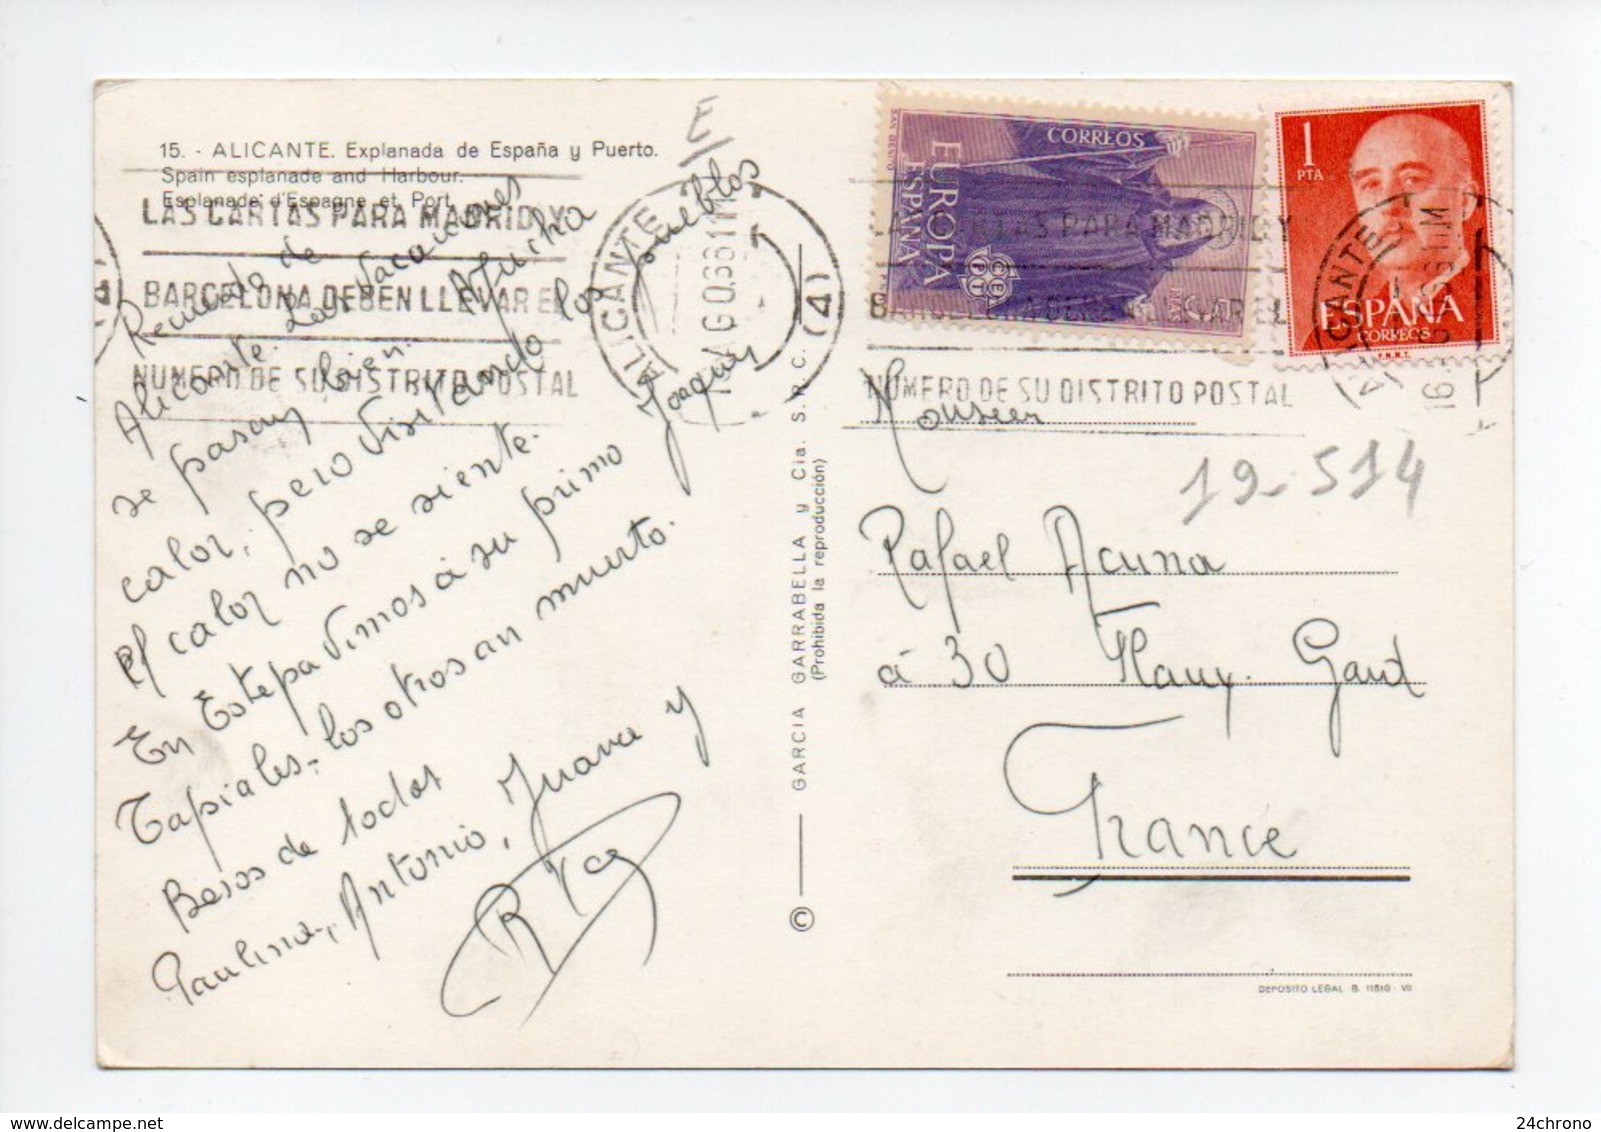 15. - ALICANTE. Explanada de España y Puerto.
Spain esplanade and Harbour.
Esplanade d'Espagne et Port.
LAS CARTAS PARA MADRID Y
BARCELONA DEBEN LLEVAR EL
NUMERO DE SU DISTRITO POSTAL
ALICANTE
(4)
E
de
Alicante. Las Vacaciones
se pasan bien. Mucha
calor, pero visitando los pueblos
el calor no se siente.
En Estepa vimos á su primo Joaquin
Tapiales, los otros an muerto.
Besos de todos
Paulina, Antonio, Juana y
GARCIA GARRABELLA y Cia. S. R. C.
(Prohibida la reproducción)
©
CORREOS
EUROPA
ESPAÑA
SAN BENITO
CEPT
1
PTA
ESPAÑA
CORREOS
F.N.M.T.
LAS CARTAS PARA MADRID Y
BARCELONA DEBEN LLEVAR EL
NUMERO DE SU DISTRITO POSTAL
ALICANTE
Monsieur
19-514
Rafael Acuna
à 30 Gard
France
DEPOSITO LEGAL B. 11510 - VII
24chrono